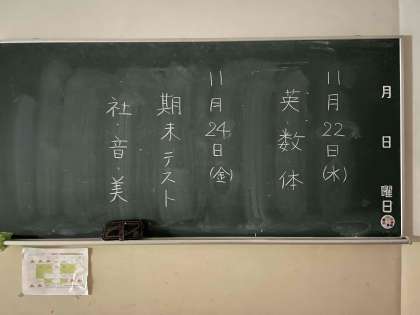 月 日 曜日
11月22日(水)
英・数・体
11月24日(金)
期末テスト
社・音・美